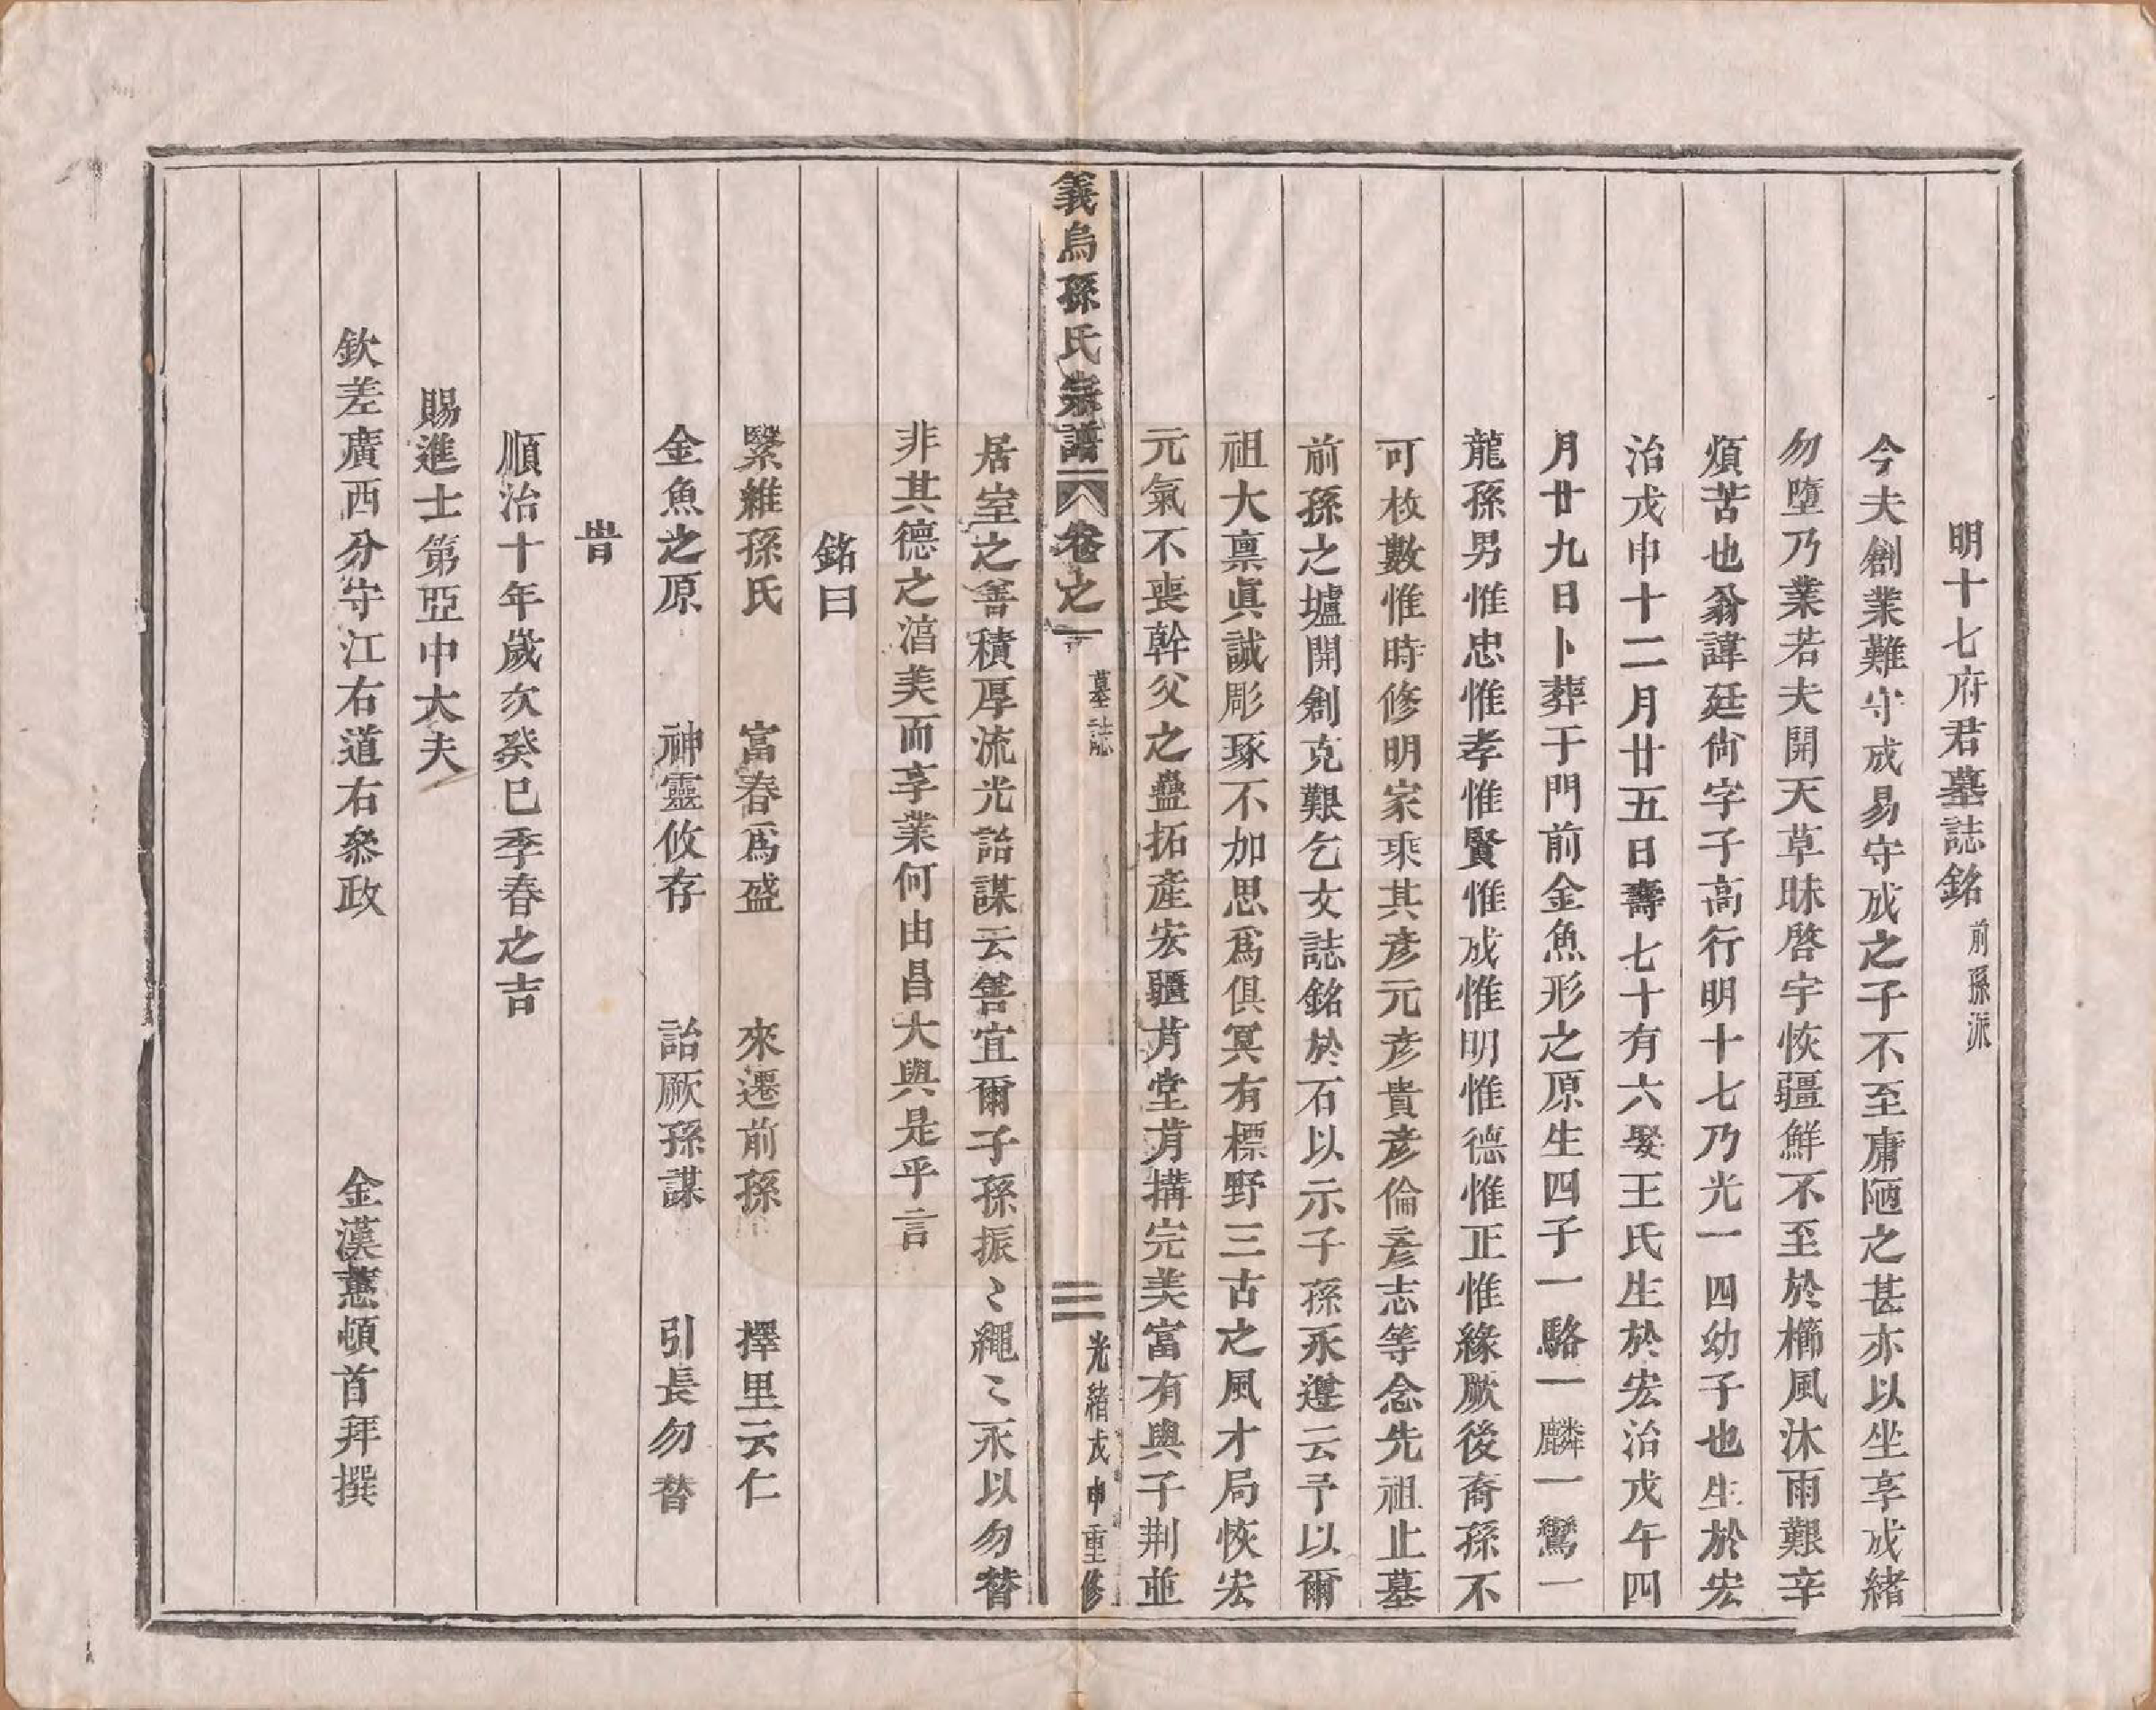 明十七府君墓誌銘 前孫派
今夫創業難守成易守成之子不至庸陋之甚亦以坐享成緒
勿墮乃業若夫開天草昧啓宇恢疆鮮不至於櫛風沐雨艱辛
煩苦也翁諱廷尙字子高行明十七乃光一四幼子也生於宏
治戊申十二月廿五日壽七十有六娶王氏生於宏治戊午四
月廿九日卜葬于門前金魚形之原生四子一駱一麟一鸞一
龍孫男惟忠惟孝惟賢惟成惟明惟德惟正惟緣厥後裔孫不
可枚數惟時修明家乘其彥元彥貴彥倫彥志等念先祖止墓
前孫之墟開創克艱乞文誌銘於石以示子孫永遵云予以爾
祖大禀眞誠彫琢不加思爲俱冥有標野三古之風才局恢宏
元氣不喪幹父之蠱拓產宏疆肯堂肯搆完美富有與子荆並
義烏孫氏宗譜 卷之一 墓誌 三 光緒戊申重修
居室之善積厚流光詒謀云善宜爾子孫振〻繩〻永以勿替
非其德之湻美而享業何由昌大與是乎言
銘曰
繄維孫氏 富春爲盛 來遷前孫 擇里云仁
金魚之原 神靈攸存 詒厥孫謀 引長勿替
旹
順治十年歲次癸巳季春之吉
賜進士第亞中大夫
欽差廣西分守江右道右叅政 金漢蕙頓首拜撰